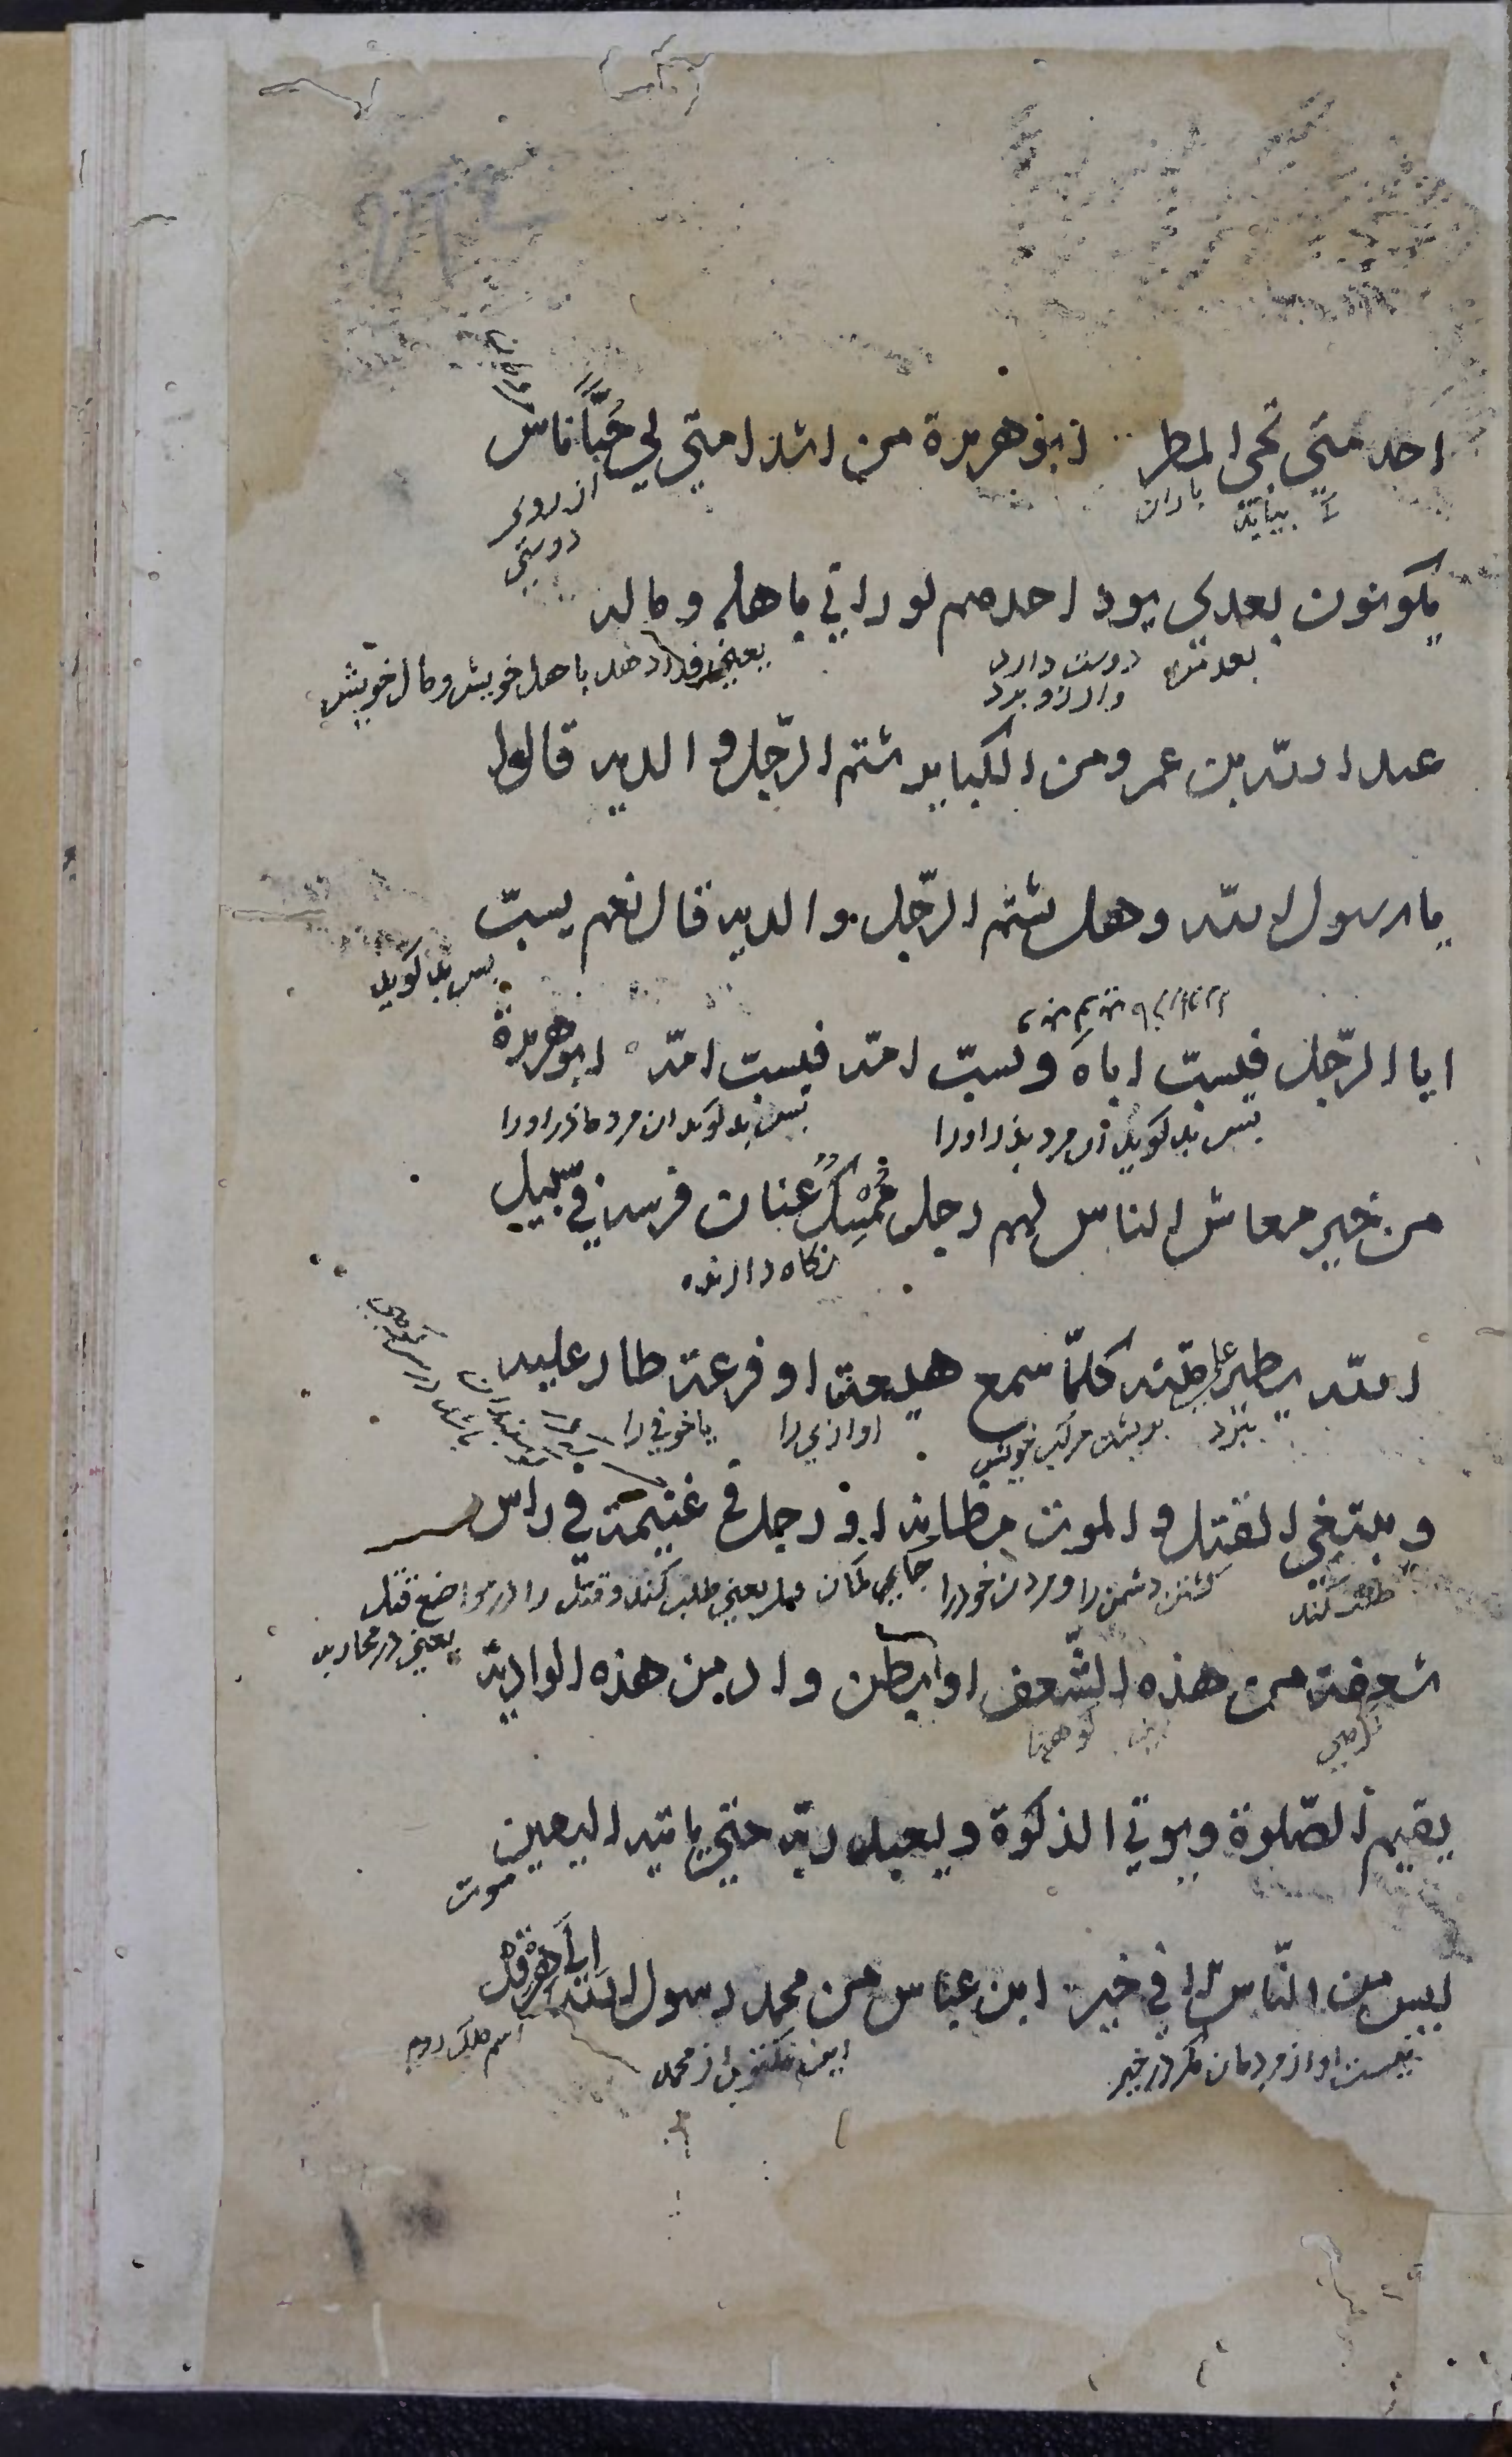 احد متى تجى المطر ابو هريرة من اشد امتي لي حبّاً ناس
بيايد باران
از روى
دوستي
يكونون بعدي يود احدهم لو رآني باهله وماله
بعد من دوست دارد
وارزو برد
يعني فدا دهد باهل خويش ومال خويش
عبد الله بن عمرو من الكباير شتم الرّجل والديه قالوا
يا رسول الله وهل يشتم الرّجل والديه قال نعم يسبّ
پس بد كويد
ابا الرّجل فيسبّ اباه ويسبّ امّه فيسب امّه ابو هريرة
پس بد كويد ان مرد پدر اورا
پس بد كويد ان مرد مادر اورا
من خير معاش الناس لهم رجل مُمْسِكٌ عنان فرسه في سبيل
نكاه دارنده
الله يطير على متنه كلّما سمع هيعة او فزعة طار عليه
بپرد بر پشت مركب خويش اوازي را يا خوفي را
ويبتغي القتل والموت مظانه او رجل في غنيمة في راس
طلب كند كشتن دشمن را ومردن خودرا جايي كمان يعني طلب كند وقتل را در مواضع قتل
يعني در محاربه
شعفة من هذه الشّعف او بطن واد من هذه الوادية
كوهي كوهها
يقيم الصّلوة ويوتي الزكوة ويعبد ربّه حتي ياتيه اليقين
موت
ليس من النّاس الا في خير ابن عباس من محمد رسول الله الى هرقل
نيست او از مردمان مكر در خير
اين مكتوب از محمد
اسم ملك روم